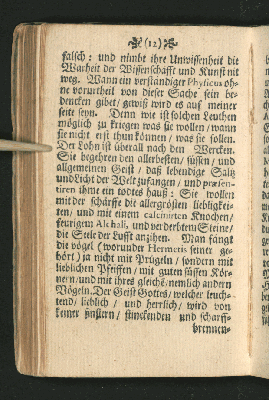 (12)
falsch: und nimbt ihre Unwissenheit die
Warheit der Wissenschafft und Kunst nit
weg. Wann ein verständiger Physicus oh-
ne vorurtheil von dieser Sache sein be-
dencken gibet/ gewiß wird es auf meiner
seite seyn. Denn wie ist solchen Leuthen
möglich zu kriegen was sie wollen/ wann
sie nicht erst thun können/ was sie sollen.
Der Lohn ist überall nach den Wercken.
Sie begehren den allerbesten/ süssen/ und
allgemeinen Geist/ daß lebendige Saltz
und Licht der Welt zufangen/ und præsen-
tiren ihme ein todtes hauß: Sie wollen
mit der schärffe die allergrösten liebligkei-
ten/ und mit einem calcinirten Knochen/
feurigem Alchali, und verderbtem Steine/
die Seele der Lufft anzihen. Man fängt
die vögel (worunder Hermetis seiner ge-
hört) ja nicht mit Prügeln/ sondern mit
lieblichen Pfeiffen/ mit guten süssen Kör-
nern/ und mit ihres gleiche/ nemlich andern
Vögeln. Der Geist Gottes/ welcher leuch-
tend/ lieblich/ und herrlich/ wird von
keiner finstern/ stinckenden und scharff-
brennen-